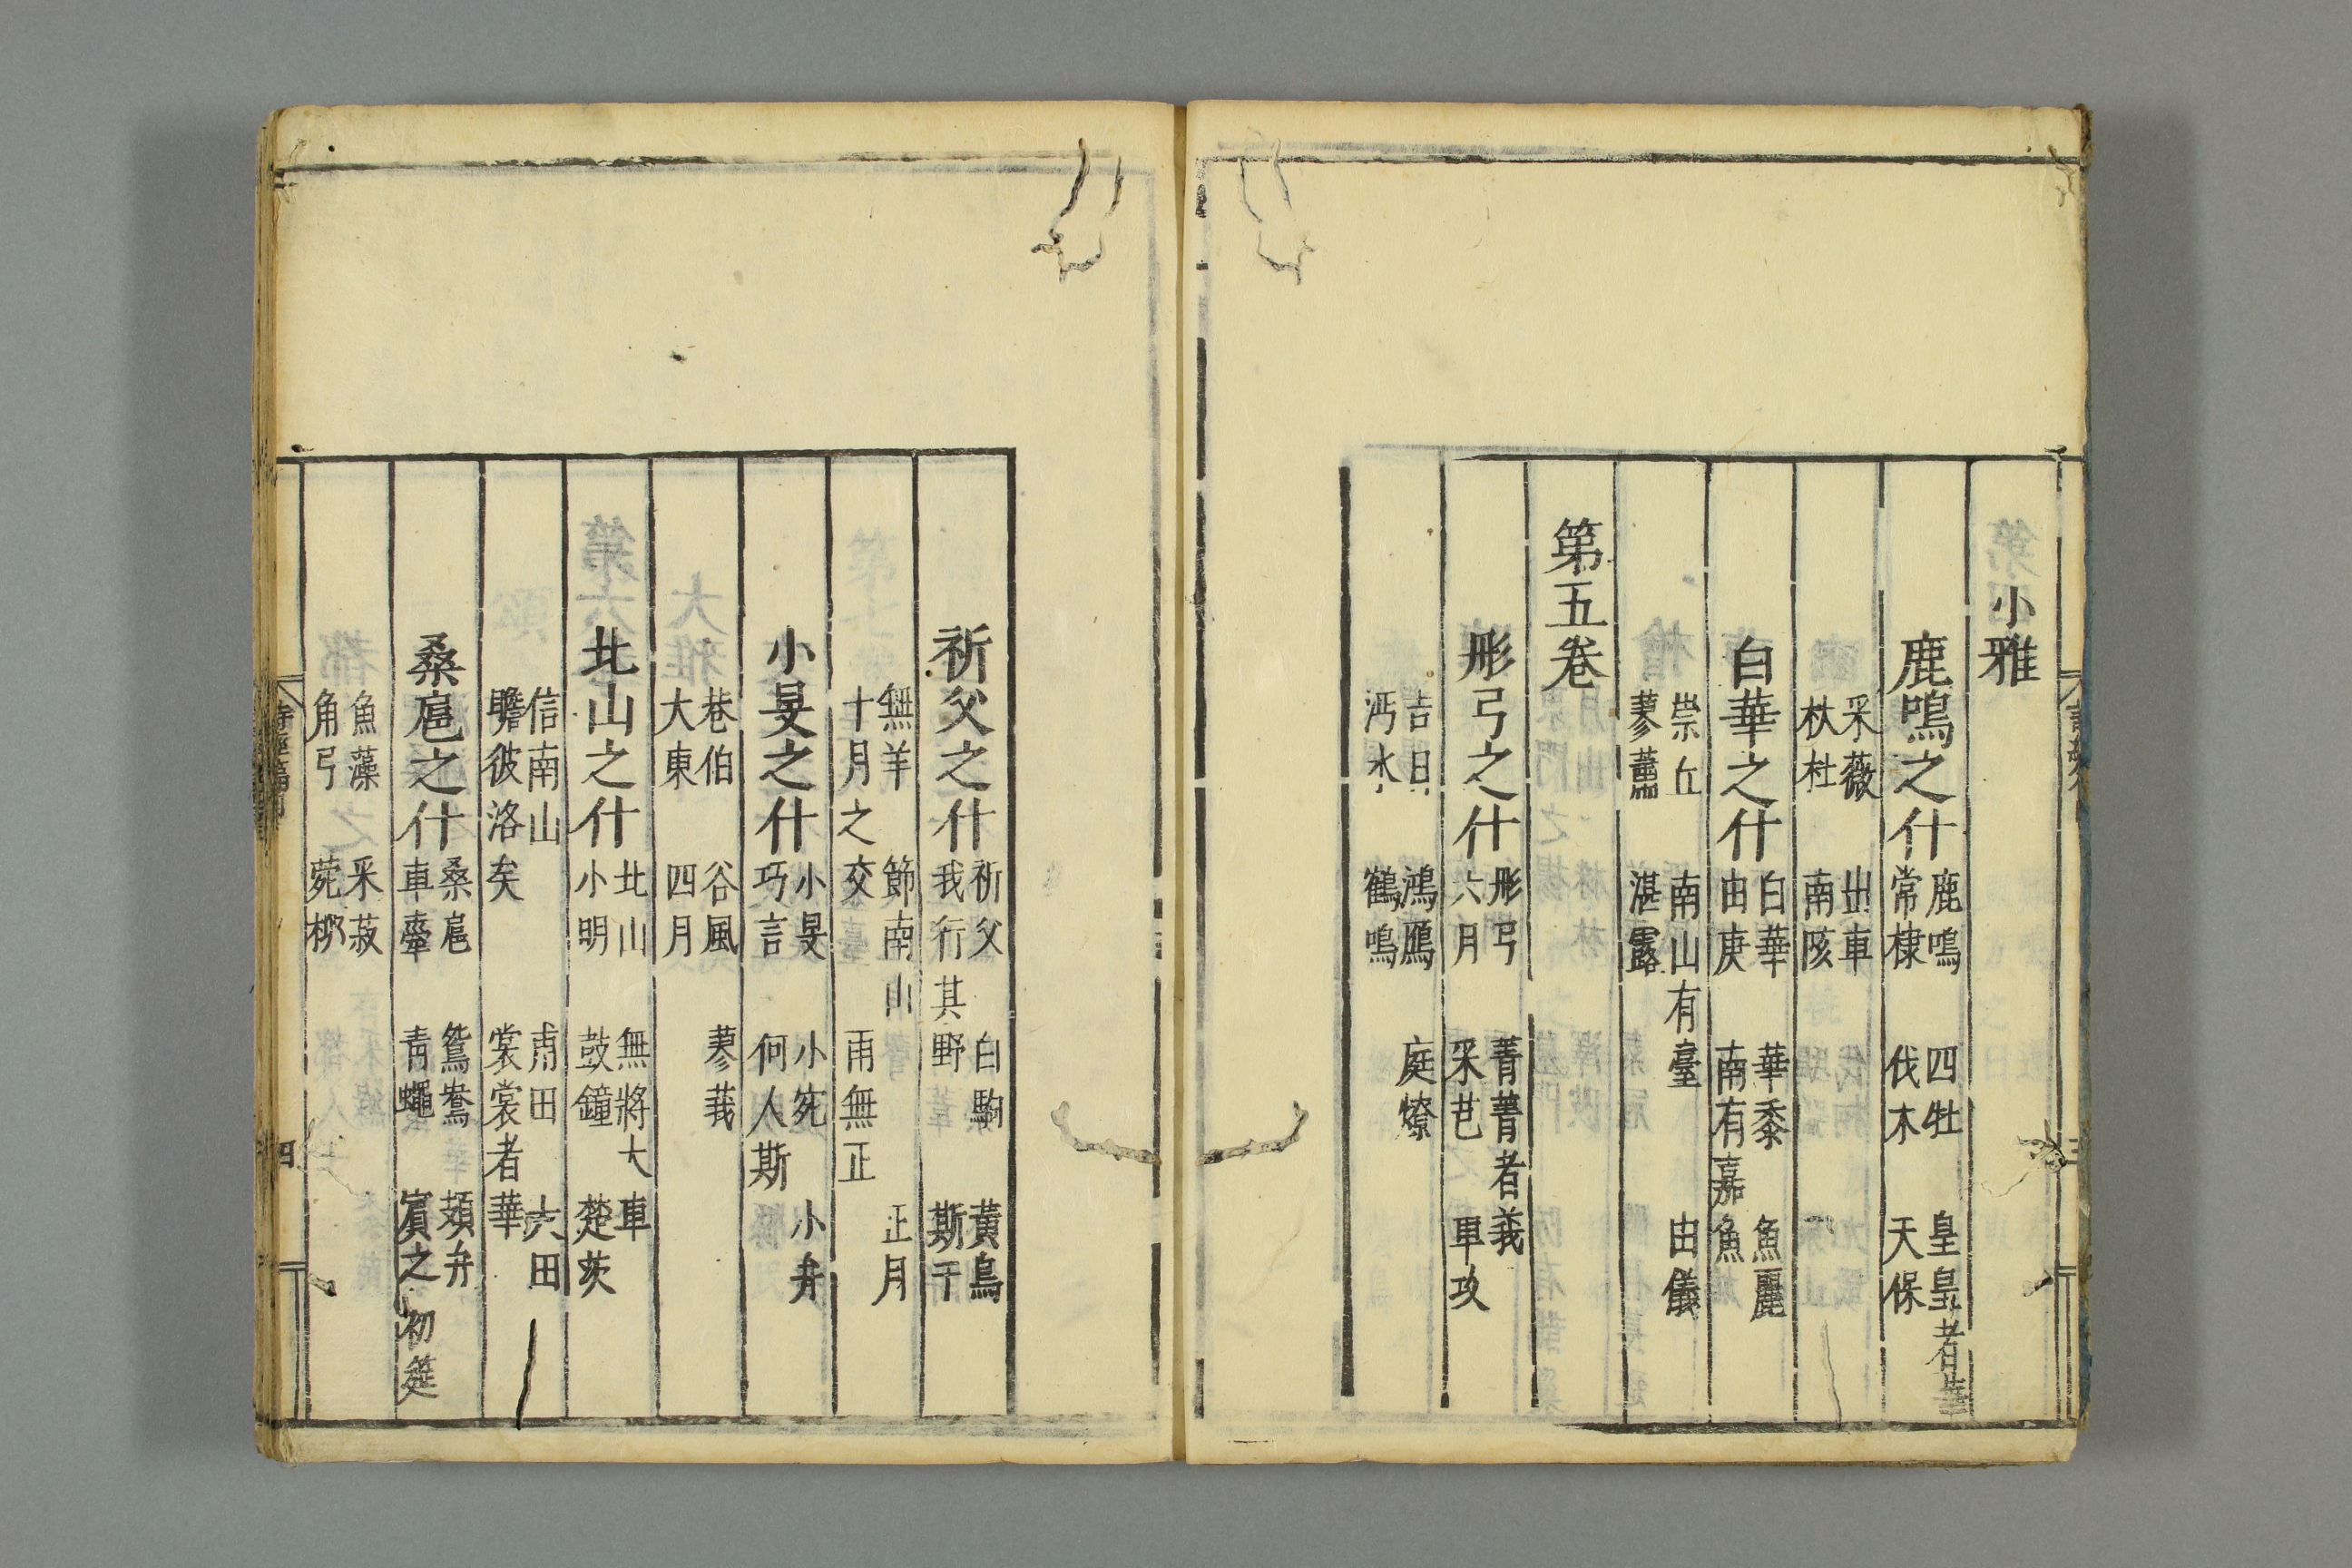 小雅
鹿鳴之什 鹿鳴 四牡 皇皇者華
常棣 伐木 天保
采薇 出車
杕杜 南陔
白華之什 白華 華黍 魚麗
由庚 南有嘉魚
崇丘 南山有臺 由儀
蓼蕭 湛露
第五卷
彤弓之什 彤弓 菁菁者莪
六月 采芑 車攻
吉日 鴻鴈 庭燎
沔水 鶴鳴
祈父之什 祈父 白駒 黃鳥
我行其野 斯干
無羊 節南山 正月
十月之交 雨無正
小旻之什 小旻 小宛 小弁
巧言 何人斯
巷伯 谷風 蓼莪
大東 四月
北山之什 北山 無將大車
小明 鼓鐘 楚茨
信南山 甫田 大田
瞻彼洛矣 裳裳者華
桑扈之什 桑扈 鴛鴦 頍弁
車舝 青蠅 賓之初筵
魚藻 采菽
角弓 菀桺
詩經篇目
四